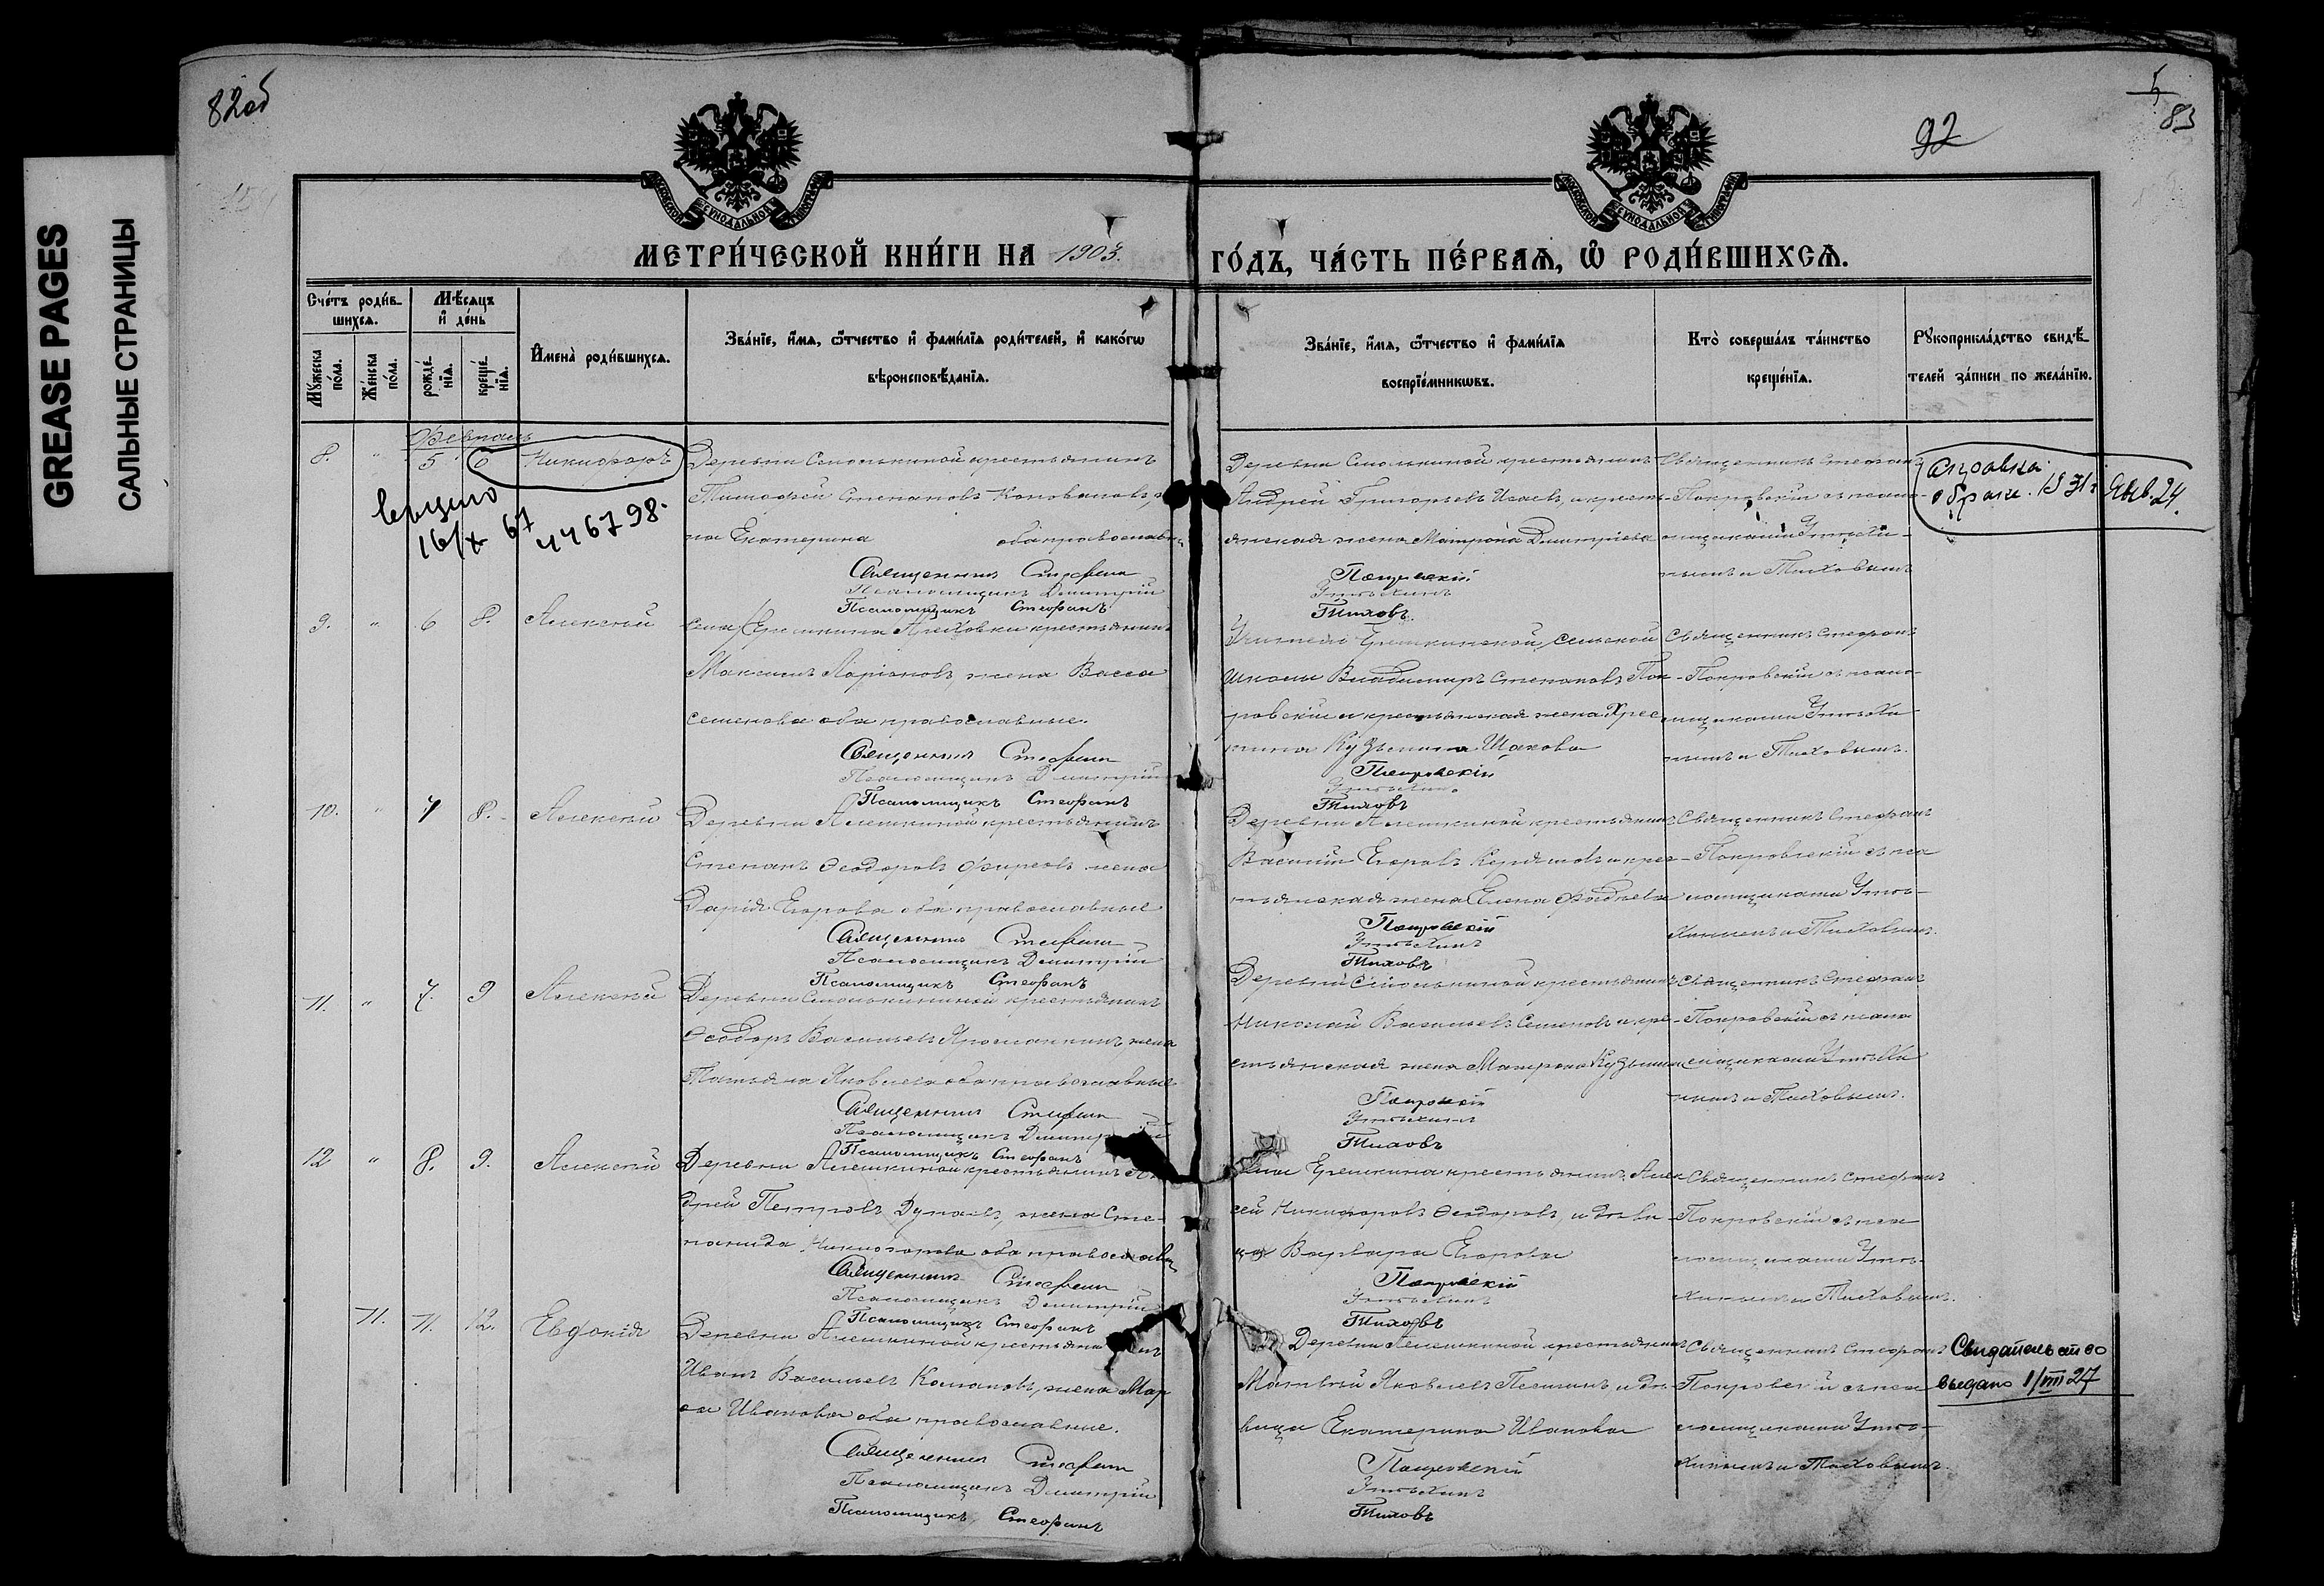 82об
5
83
92
GREASE PAGES
САЛЬНЫЕ СТРАНИЦЫ
МОСКОВСКОЙ СѴНОДАЛЬНОЙ ТИПОГРАФІИ
МОСКОВСКОЙ СѴНОДАЛЬНОЙ ТИПОГРАФІИ
МЕТРИ́ЧЕСКОЙ КНИ́ГИ НА 1903. ГО́ДЪ, ЧА́СТЬ ПЕ́РВАѦ, Ѡ РОДИ́ВШИХСѦ.
Сче́тъ роди́в-
шихсѧ.
Мꙋ́жеска
по́ла.
Же́нска
по́ла.
Мѣ́сѧцъ
и҆ де́нь
рожде́-
нїѧ.
креще́-
нїѧ.
И҆мена̀ роди́вшихсѧ.
Зва́нїе, и҆́мѧ, ѻ҆́тчество и҆ фами́лїѧ роди́телей, и҆ како́гѡ
вѣроисповѣ́данїѧ.
Зва́нїе, и҆́мѧ, ѻ҆́тчество и҆ фами́лїѧ
воспрїе́мникѡвъ.
Кто̀ соверша́лъ та́инство
креще́нїѧ.
Рꙋкоприкла́дство свидѣ́-
телей за́писи по жела́нїю.
Февраль
8. " 5 6 Никифоръ
Деревни Смолькиной крестьянинъ
Тимофей Степановъ Коновалов, же
на Екатерина оба православн
Священникъ Стефанъ
Псаломщикъ Димитрій
Псаломщикъ Стефанъ
Деревни Смолькиной крестьянинъ
Андрей Григорьевъ Исаевъ, и кресть-
янская жена Матрона Димитріева
Покровскій
Утѣхинъ
Тиховъ.
Священникъ Стефанъ
Покровскій съ псало-
мщиками Утѣхи-
нымъ и Тиховымъ
справка
о браке. 1931 г Янв. 24.
16/X 67 446798.
9. " 6 8. Алексѣй
села Ерешкина Алеховки крестьянинъ
Максимъ Ларіоновъ, жена Васса
Семенова оба православные.
Священникъ Стефанъ
Псаломщикъ Димитрій
Псаломщикъ Стефанъ
Учитель Ерешкинской сельской
школы Владимиръ Степановъ Пок-
ровскій и крестьянская жена Хрис
тина Кузьмина Шахова
Покровскій
Утѣхинъ
Тиховъ
Священникъ Стефанъ
Покровскій съ псало-
мщиками Утѣхи-
нымъ и Тиховымъ.
10. " 7 8. Алексѣй
Деревни Алешкиной крестьянинъ
Степанъ Ѳеодоровъ Фирсовъ жена
Дарія Егорова оба православные
Священникъ Стефанъ
Псаломщикъ Димитрій
Псаломщикъ Стефанъ
Деревни Алешкиной крестьянинъ
Василій Егоровъ Курдяшовъ и крес-
тьянская жена Елена Фадѣева
Покровскій
Утѣхинъ
Тиховъ
Священникъ Стефанъ
Покровскій съ пса
ломщиками Утѣ-
хинымъ и Тиховымъ.
11. " 7. 9 Алексѣй
Деревни Смолькиной крестьянинъ
Ѳеодоръ Васильевъ жена
Татьяна Яковлева оба православные
Священникъ Стефанъ
Псаломщикъ Димитрій
Псаломщикъ Стефанъ
Деревни Смолькиной крестьянинъ
Николай Васильевъ Семеновъ и кре-
стьянская жена Матрона Кузьмина
Покровскій
Утѣхинъ
Тиховъ
Священникъ Стефанъ
Покровскій съ псало
мщиками Утѣхи
нымъ и Тиховымъ.
12 " 8. 9. Алексѣй
Деревни Алешкиной крестьянинъ Ан
дрей Петровъ Дунаевъ, жена Сте-
панида Никифорова оба православн
Священникъ Стефанъ
Псаломщикъ Димитрій
Псаломщикъ Стефанъ
Села Ерешкина крестьянинъ Алек
сей Никифоровъ Ѳеодоровъ, и дѣви
ца Варвара Егорова
Покровскій
Утѣхинъ
Тиховъ
Священникъ Стефанъ
Покровскій съ пса-
ломщиками Утѣ-
хинымъ и Тиховымъ.
11. 11. 12. Евдокія
Деревни Алешкиной крестьянинъ
Иванъ Васильевъ Компановъ, жена Мар
ѳа Иванова оба православные.
Священникъ Стефанъ
Псаломщикъ Димитрій
Псаломщикъ, Стефанъ
Деревни Алешкиной крестьянинъ
Матвѣй Яковлевъ Песнинъ, и дѣ-
вица Екатерина Иванова
Покровскій
Утѣхинъ
Тиховъ
Священникъ Стефанъ
Покровскій съ пса
ломщиками Утѣ-
хинымъ и Тиховымъ.
Свидетельство
выдано 1/VIII 27